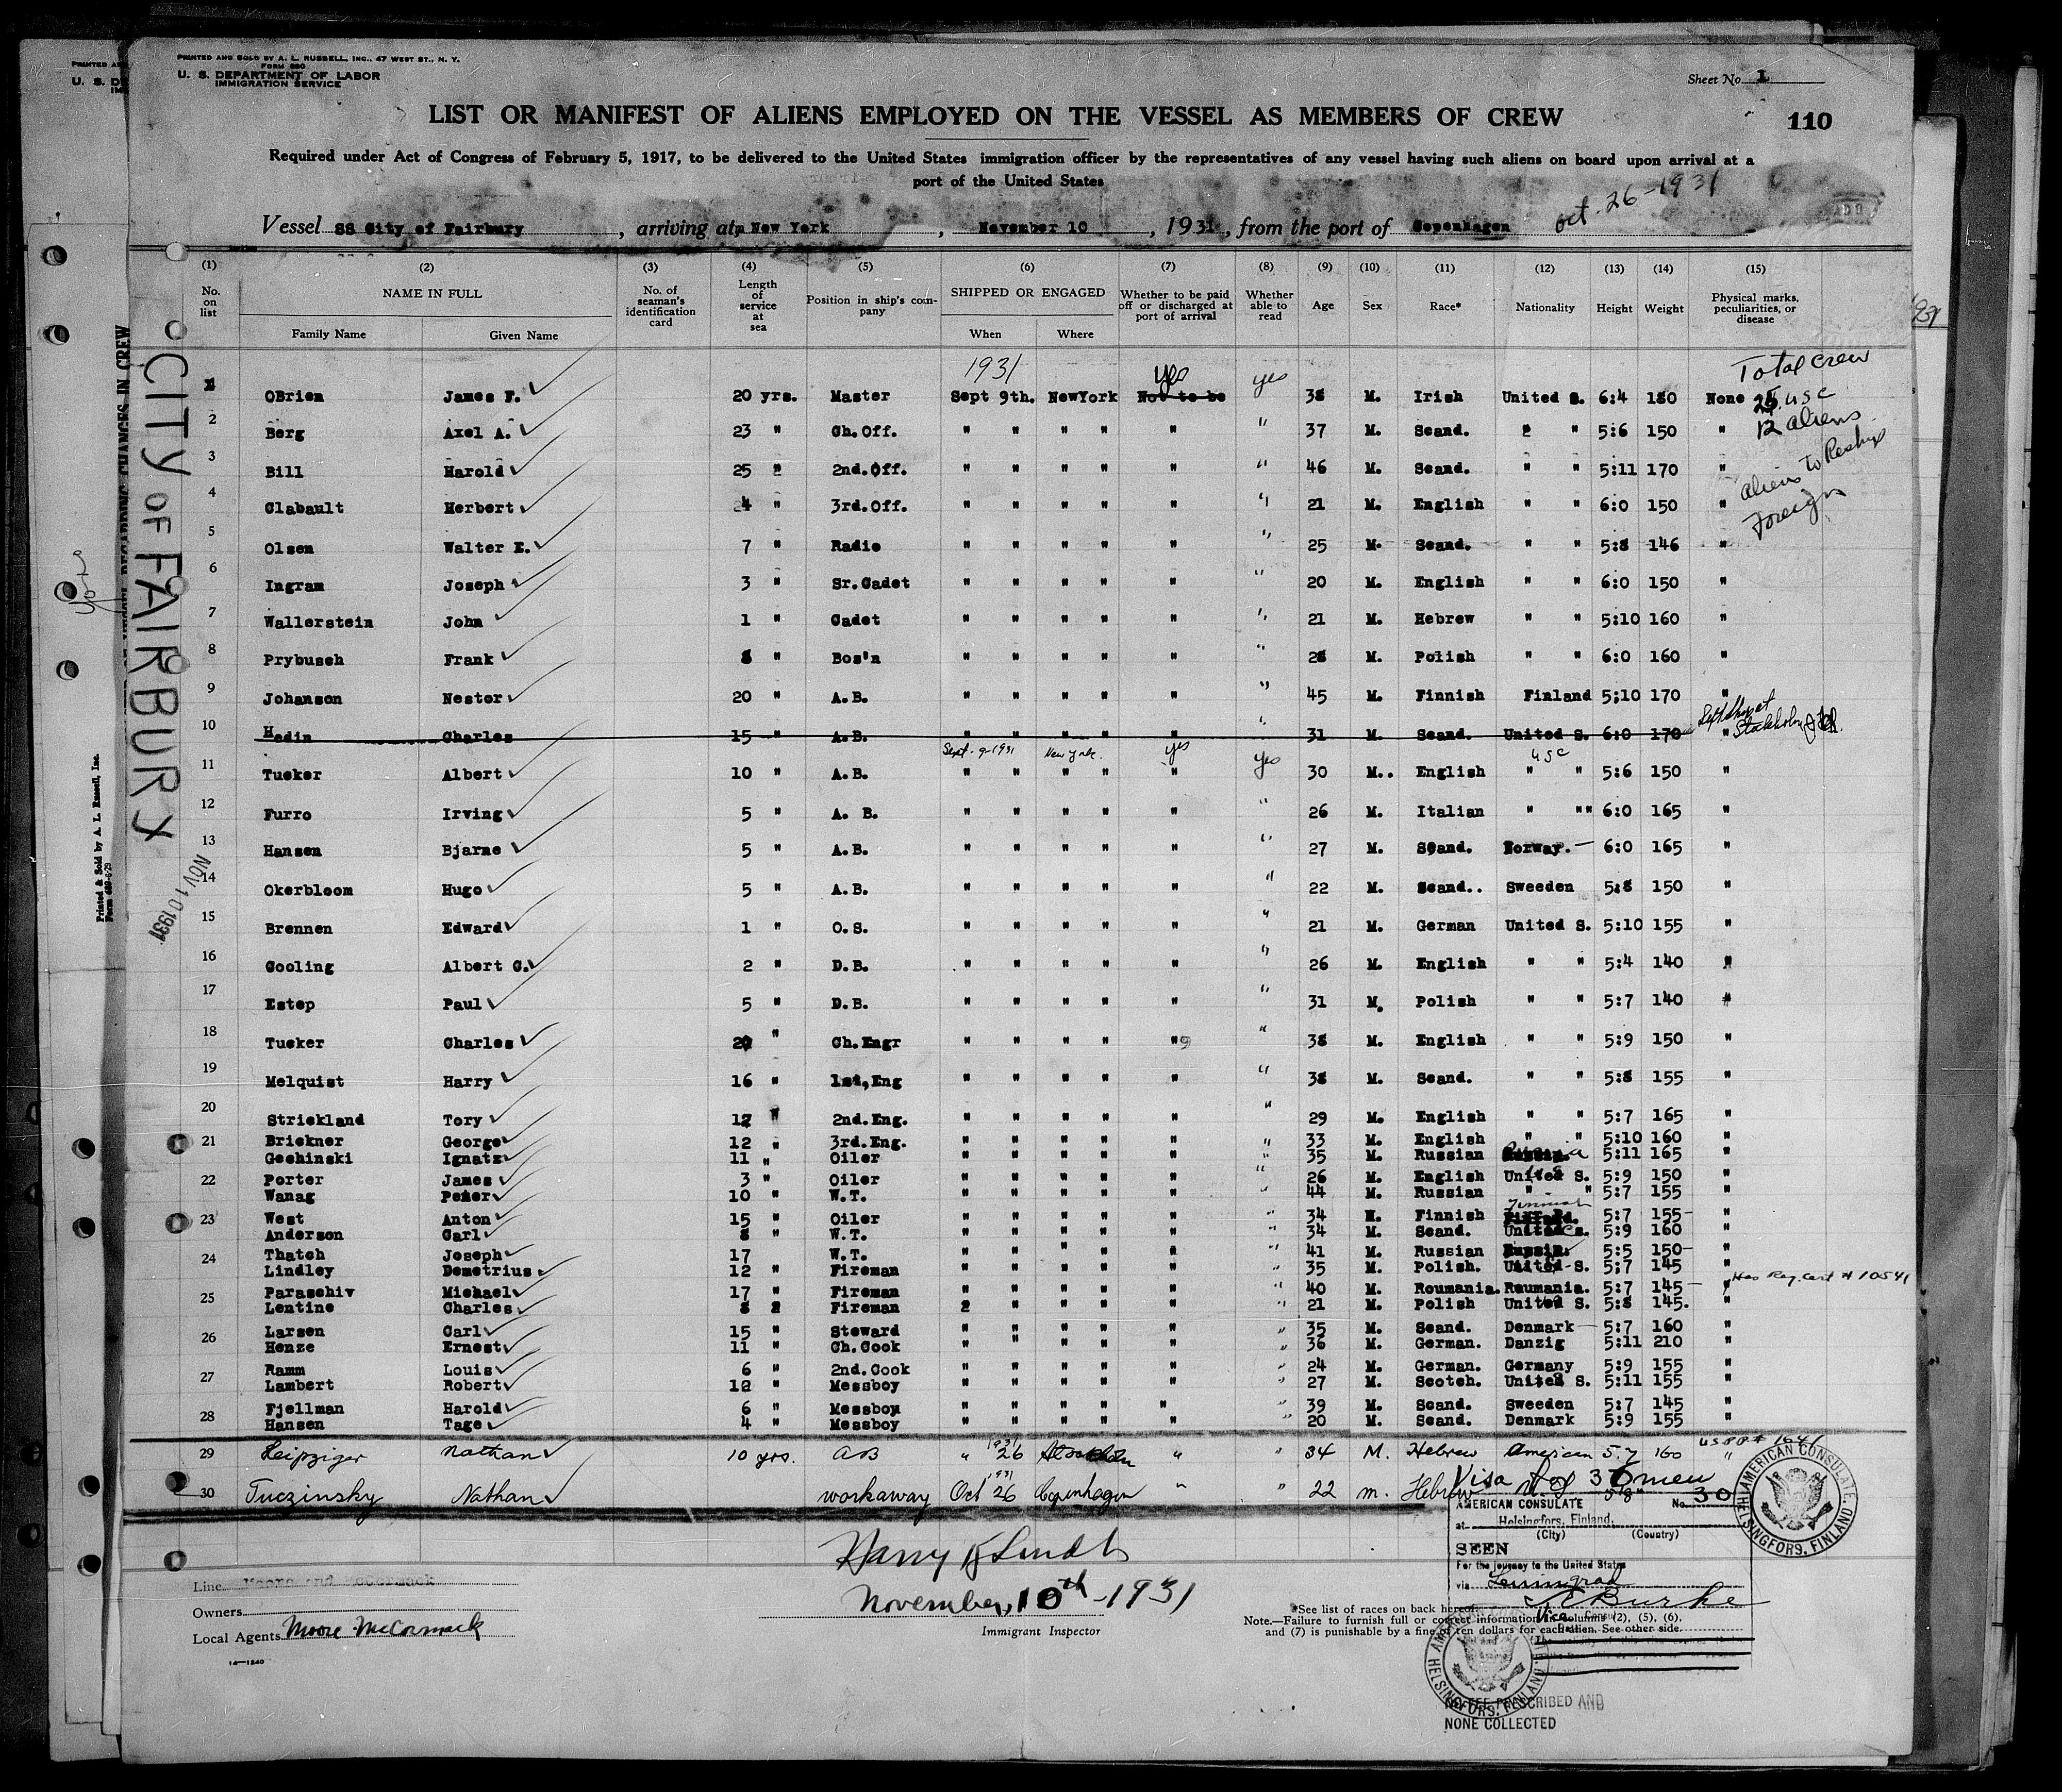 PRINTED AND SOLD BY A. L. RUSSELL, INC., 47 WEST ST., N. Y.
FORM 680
U. S. DEPARTMENT OF LABOR
IMMIGRATION SERVICE
Sheet No. 1
LIST OR MANIFEST OF ALIENS EMPLOYED ON THE VESSEL AS MEMBERS OF CREW
110
Required under Act of Congress of February 5, 1917, to be delivered to the United States immigration officer by the representatives of any vessel having such aliens on board upon arrival at a
port of the United States
Oct. 26-1931
Vessel SS City of Fairbury, arriving at New York, November 10, 1931, from the port of Copenhagen
(1) (2) (3) (4) (5) (6) (7) (8) (9) (10) (11) (12) (13) (14) (15)
No. on list NAME IN FULL Family Name Given Name No. of seaman's identification card Length of service at sea Position in ship's company SHIPPED OR ENGAGED When Where Whether to be paid off or discharged at port of arrival Whether able to read Age Sex Race* Nationality Height Weight Physical marks, peculiarities, or disease
CITY OF FAIRBURY
NOV 10 1931
1931 yes yes Total crew
1 OBrien James F. 20 yrs. Master Sept 9th. NewYork Not to be 38 M. Irish United S. 6:4 180 None 25 usc
12 aliens
2 Berg Axel A. 23 " Ch.Off. " " " " " " 37 M. Scand. " " 5:6 150 "
3 Bill Harold 25 " 2nd.Off. " " " " " " 46 M. Scand. " " 5:11 170 "
aliens to Reship
Foreign
4 Clabault Herbert 4 " 3rd.Off. " " " " " " 21 M. English " " 6:0 150 "
5 Olsen Walter E. 7 " Radio " " " " " " 25 M. Scand. " " 5:8 146 "
6 Ingram Joseph 3 " Sr.Cadet " " " " " " 20 M. English " " 6:0 150 "
7 Wallerstein John 1 " Cadet " " " " " " 21 M. Hebrew " " 5:10 160 "
8 Prybusch Frank 8 " Bos'n " " " " " " 28 M. Polish " " 6:0 160 "
9 Johanson Nester 20 " A.B. " " " " " " 45 M. Finnish Finland 5;10 170 "
10 Hedin Charles 15 " A.B. " " " " " " 31 M. Scand. United S. 6:0 170 " Stockholm
Sept. 9-1931 New York. yes yes usc
11 Tucker Albert 10 " A.B. " " " " " 30 M.. English " " 5:6 150 "
12 Furro Irving 5 " A. B. " " " " " " 26 M. Italian " "" 6:0 165 "
13 Hansen Bjarne 5 " A.B. " " " " " " 27 M. Scand. Norway. 6:0 165 "
14 Okerbloom Hugo 5 " A.B. " " " " " " 22 M. Scand.. Sweeden 5:8 150 "
15 Brennen Edward 1 " O.S. " " " " " " 21 M. German United S. 5:10 155 "
16 Cooling Albert C. 2 " D.B. " " " " " " 26 M. English " " 5:4 140 "
17 Estep Paul 5 " D.B. " " " " " " 31 M. Polish " " 5:7 140 "
18 Tucker Charles 20 " Ch.Engr " " " " " " 38 M. English " " 5:9 150 "
19 Melquist Harry 16 " 1st,Eng " " " " " " 38 M. Scand. " " 5:8 155 "
20 Strickland Tory 12 " 2nd.Eng. " " " " " " 29 M. English " " 5:7 165 "
21 Brickner George 12 " 3rd.Eng. " " " " " " 33 M. English " " 5:10 160 "
Gechinski Ignatz 11 " Oiler " " " " " " 35 M. Russian Russia 5:11 165 "
22 Porter James 3 " Oiler " " " " " " 26 M. English United S. 5:9 150 "
Wanag Peter 10 " W.T. " " " " " " 44 M. Russian " " 5:7 155 "
23 West Anton 15 " Oiler " " " " " " 34 M. Finnish Finland. 5:7 155 "
Anderson Carl 8 " W.T. " " " " " " 34 M. Scand. United S. 5:9 160 "
24 Thatch Joseph 17 W.T. " " " " " " 41 M. Russian Russia. 5:5 150 "
Lindley Demetrius 12 " Fireman " " " " " " 35 M. Polish. United S. 5;7 145 "
25 Paraschiv Michael 17 " Fireman " " " " " " 40 M. Roumania. Roumania. 5:7 145 " Has Reg. Cert # 10541
Lentine Charles 8 " Fireman 2 " " " " " 21 M. Polish United S. 5:8 145. "
26 Larsen Carl 15 " Steward " " " " " " 35 M. Scand. Denmark 5:7 160 "
Henze Ernest 11 " Ch.Cook " " " " " " 36 M. German. Danzig 5:11 210 "
27 Ramm Louis 6 " 2nd.Cook " " " " " " 24 M. German. Germany 5:9 155 "
Lambert Robert 12 " Messboy " " " " " " 27 M. Scotch. United S. 5:11 155 "
28 Fjellman Harold 6 " Messboy " " " " " " 39 M. Scand. Sweeden 5:7 145 "
Hansen Tage 4 " Messboy " " " " " " 20 M. Scand. Denmark 5:9 155 "
29 Leipziger Nathan 10 yrs. AB " 1931 26 " " 34 M. Hebrew American 5.7 160 "
30 Tuczinsky Nathan workaway Oct 1931 26 Copenhagen " " 22 m. Hebrew 5"8"
Visa for 36 men
AMERICAN CONSULATE No. 30
at Helsingfors, Finland.
(City) (Country)
SEEN
For the journey to the United States
via Leningrad
AMERICAN CONSULATE HELSINGFORS, FINLAND
Harry B Lindt
November 10th-1931
Immigrant Inspector
Line Moore and McCormack
Owners
Local Agents Moore McCormack
14—1240
*See list of races on back hereof.
Note.—Failure to furnish full or correct information in columns (2), (5), (6),
and (7) is punishable by a fine of ten dollars for each alien. See other side.
AMERICAN CONSULATE HELSINGFORS, FINLAND
NO FEE PRESCRIBED AND
NONE COLLECTED
Printed & Sold by A. L. Russell, Inc.